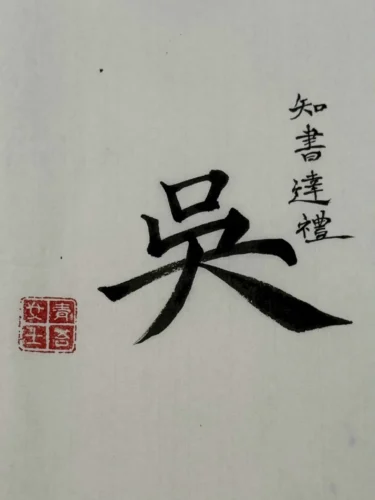 知書達禮
吳